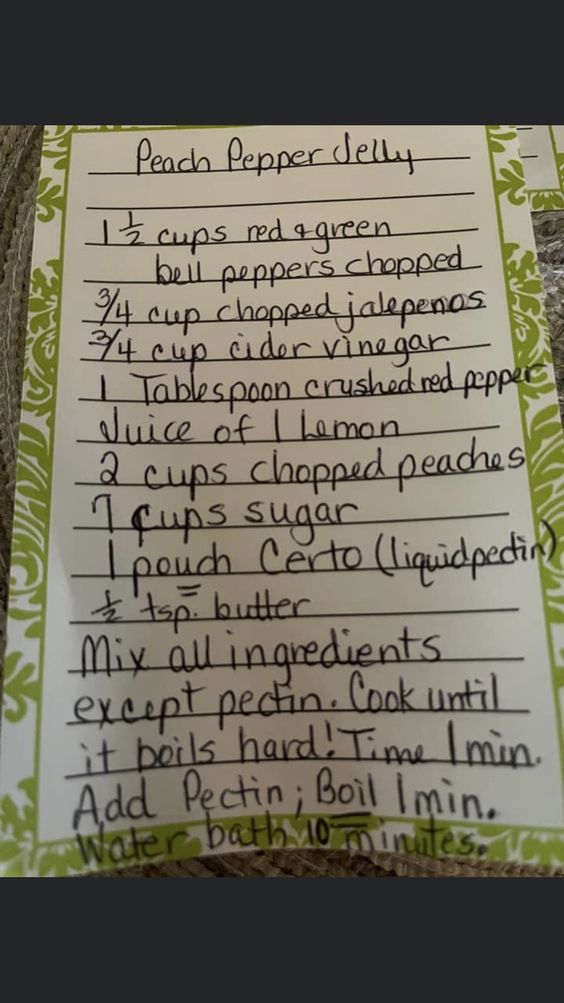 Peach Pepper Jelly
1 ½ cups red & green
bell peppers chopped
3/4 cup chopped jalepenos
3/4 cup cider vinegar
1 Tablespoon crushed red pepper
Juice of 1 Lemon
2 cups chopped peaches
7 cups sugar
1 pouch Certo (liquid pectin)
½ tsp. butter
Mix all ingredients
except pectin. Cook until
it boils hard! Time 1 min.
Add Pectin; Boil 1 min.
Water bath 10 minutes.